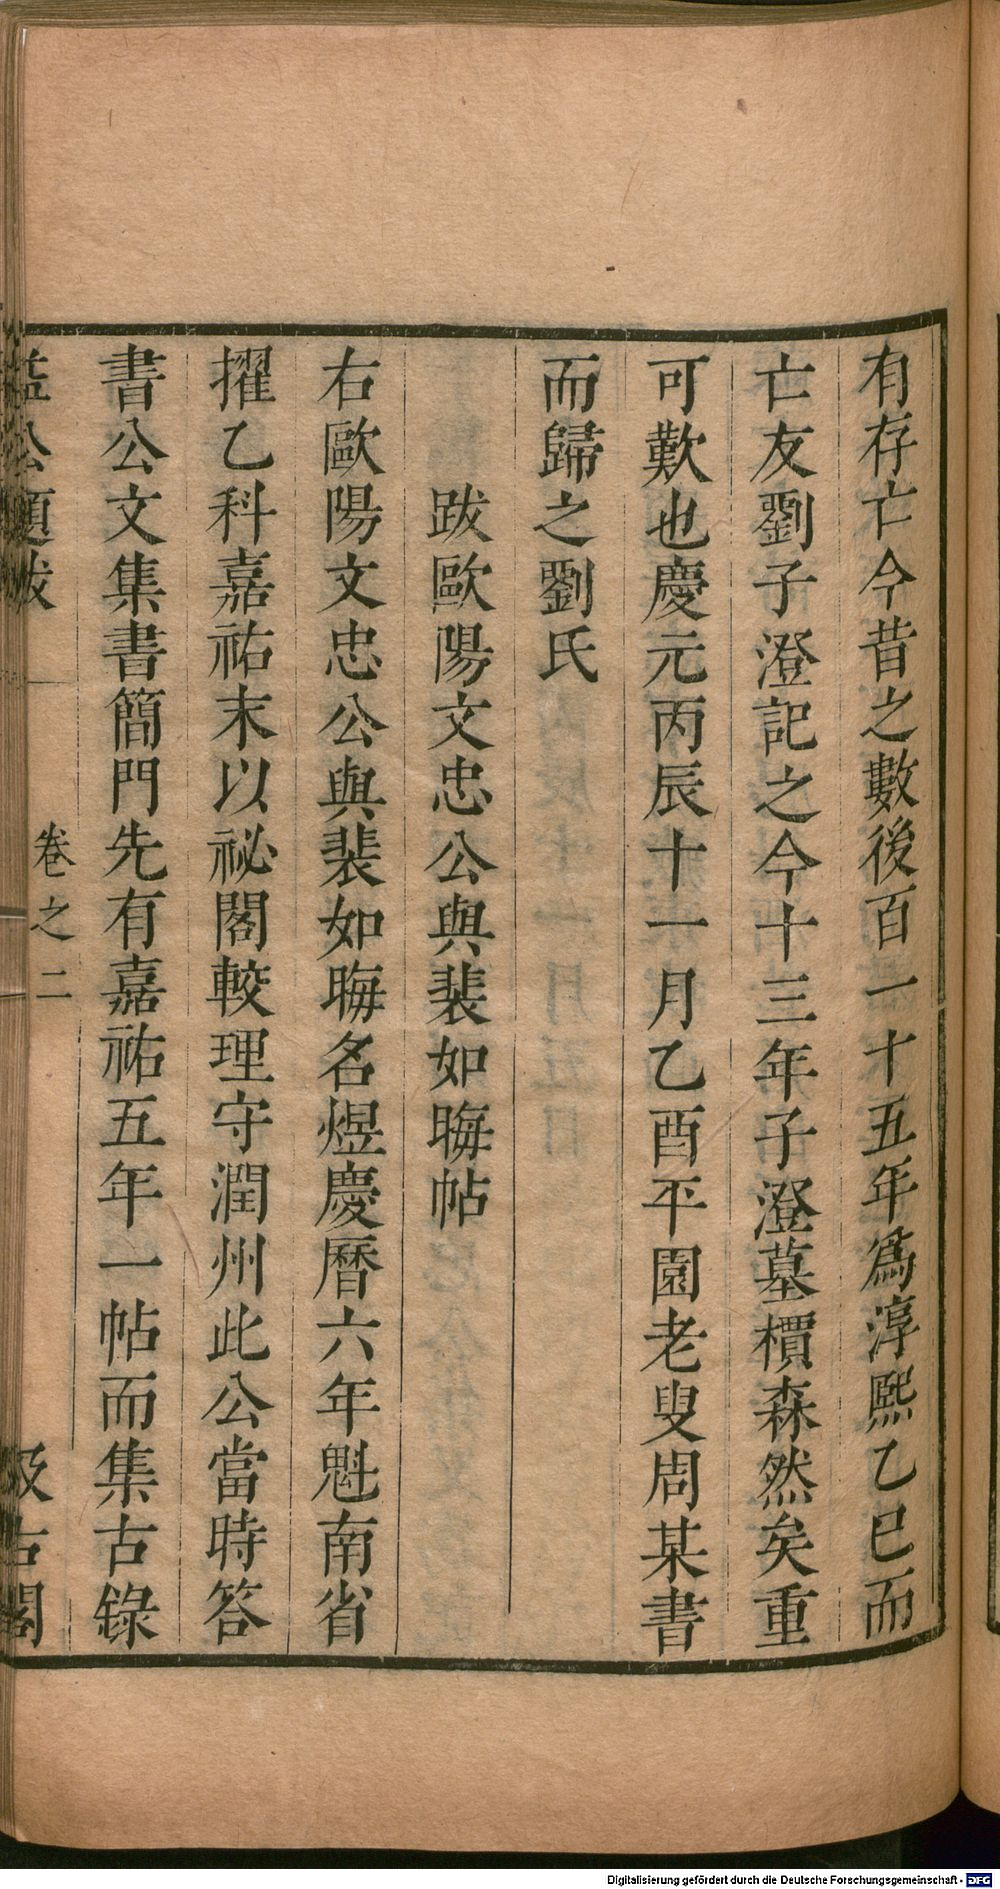 有存亡今昔之數後百一十五年爲淳熙乙巳而
亡友劉子澄記之今十三年子澄墓檟森然矣重
可歎也慶元丙辰十一月乙酉平園老叟周某書
而歸之劉氏
跋歐陽文忠公與裴如晦帖
右歐陽文忠公與裴如晦名煜慶曆六年魁南省
擢乙科嘉祐末以祕閣較理守潤州此公當時答
書公文集書簡門先有嘉祐五年一帖而集古錄
益公題跋
卷之二
汲古閣
Digitalisierung gefördert durch die Deutsche Forschungsgemeinschaft - DFG